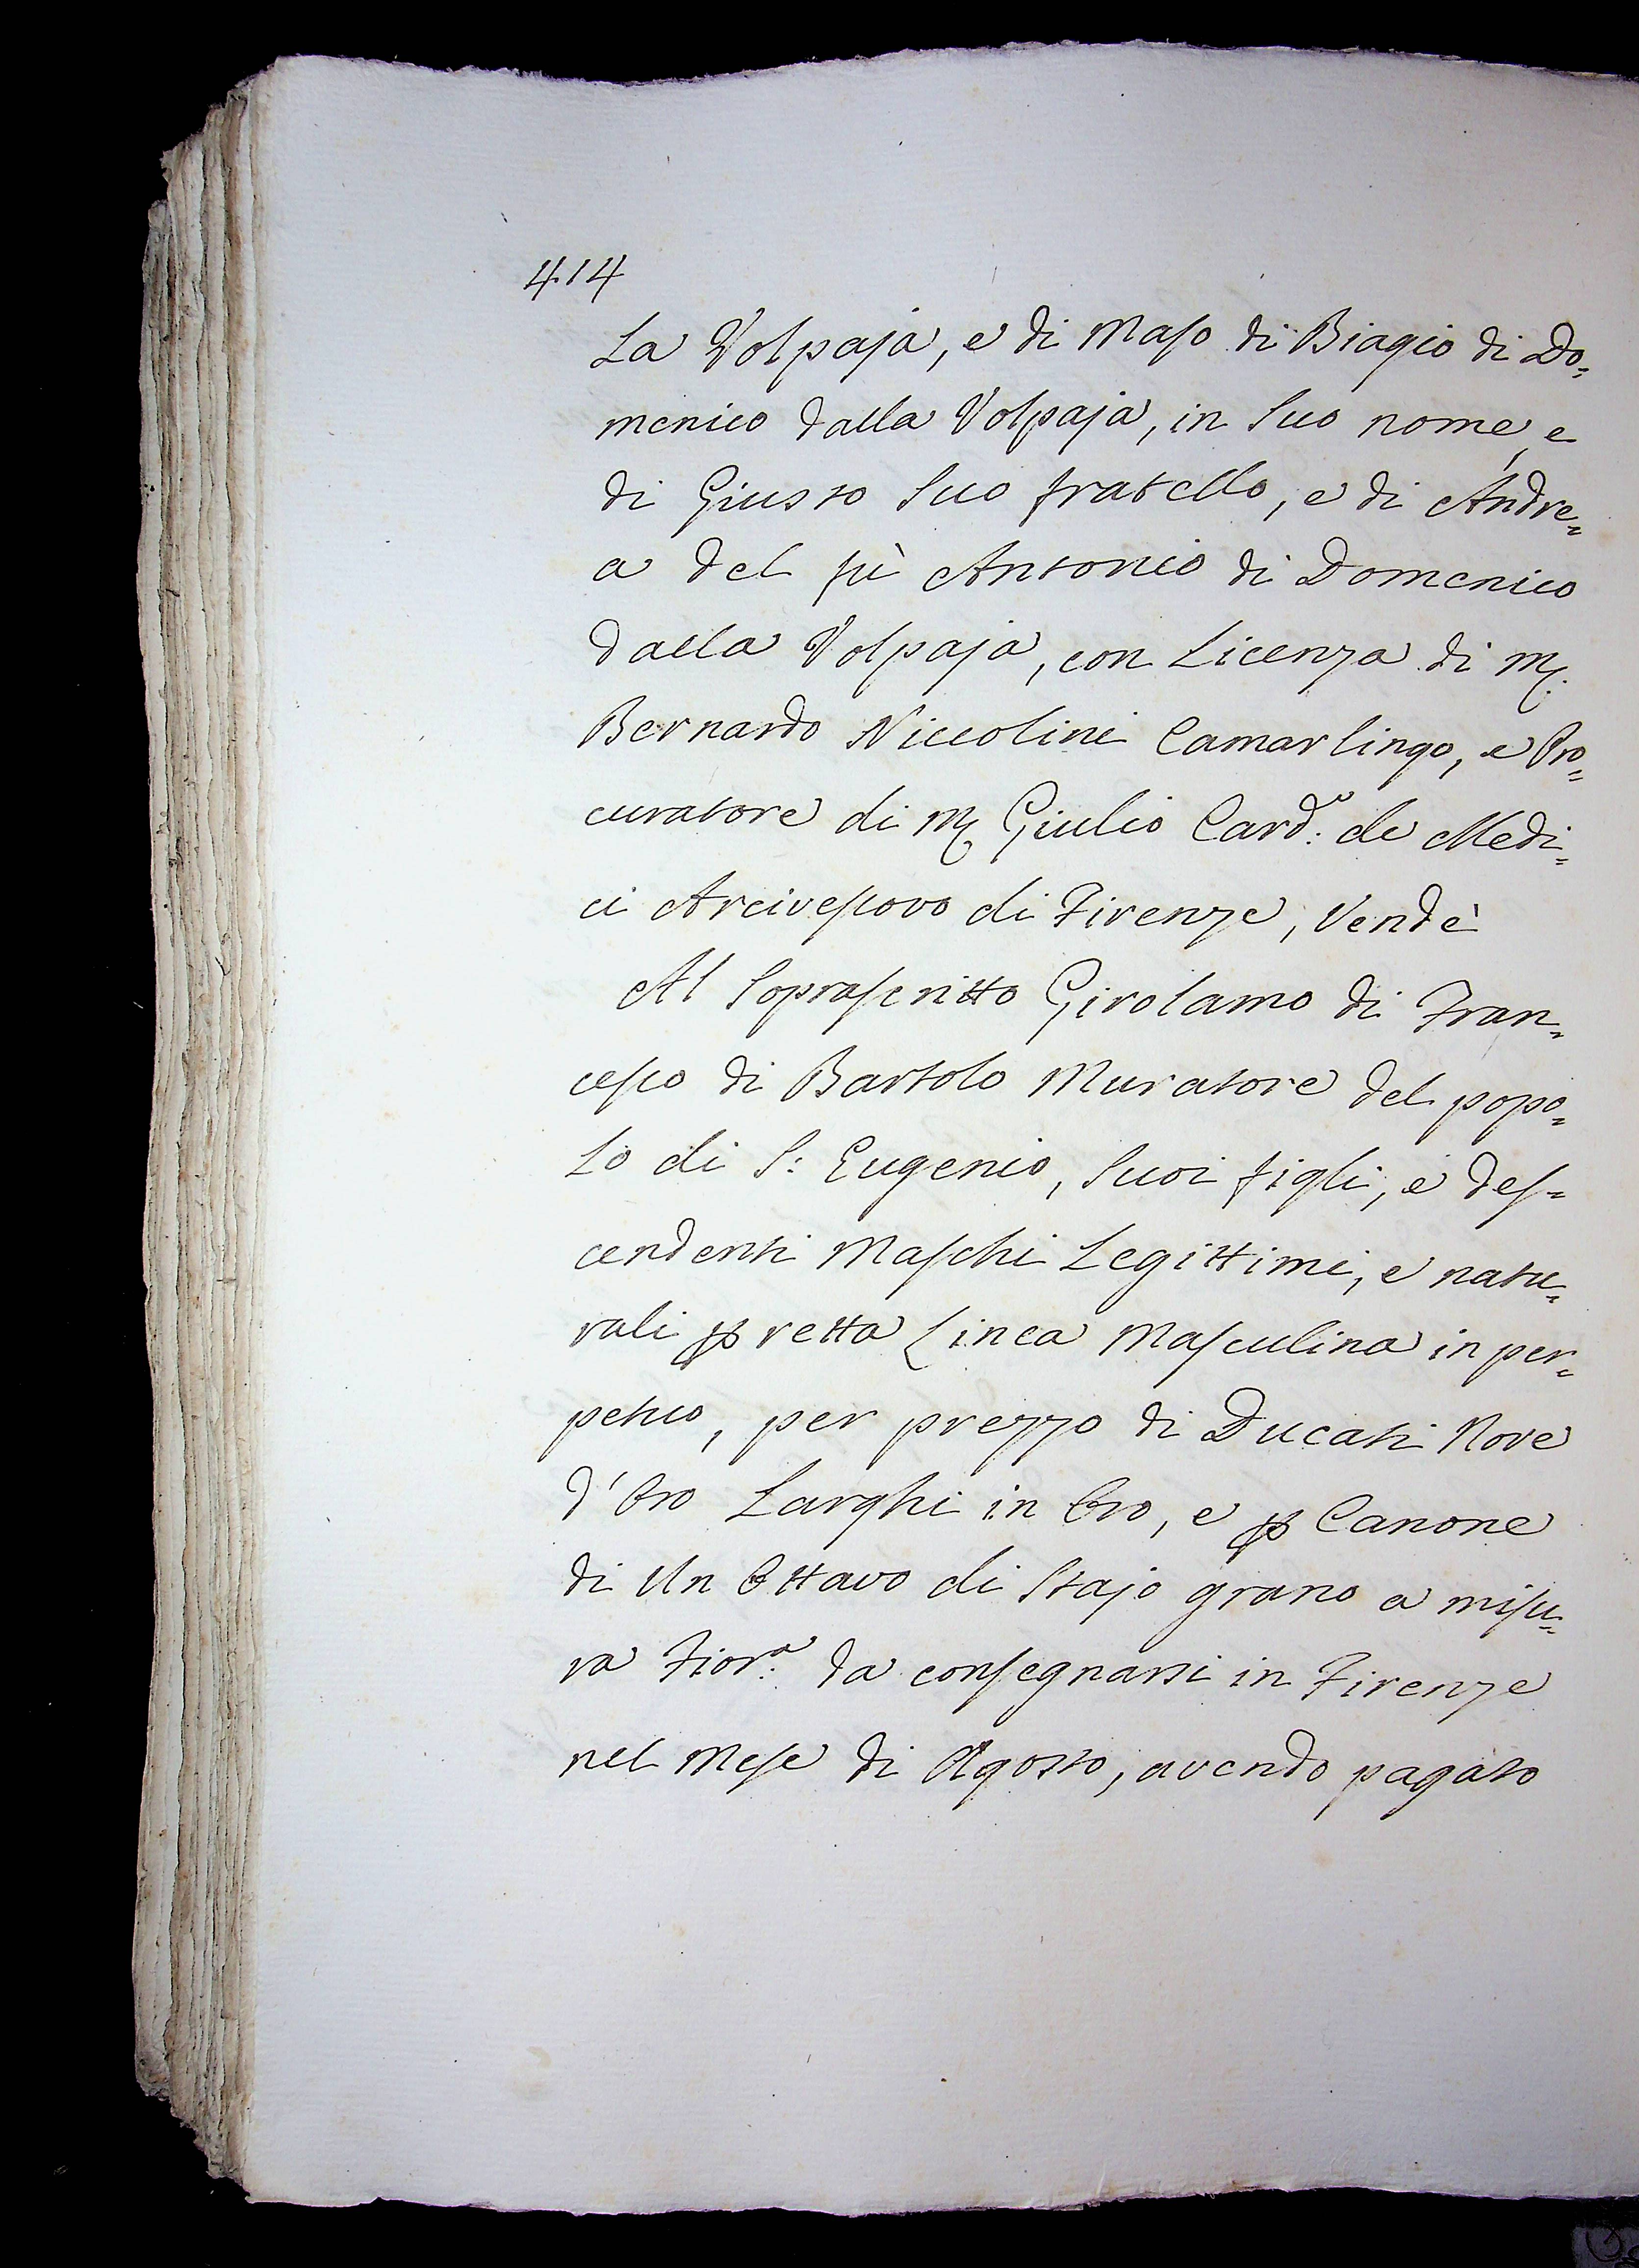 414
La Volpaja, e di Maso di Biagio di Do=
menico dalla Volpaja, in Suo nome, e
di Giusto Suo fratello, e di Andre=
a del fù Antonio di Domenico
dalla Volpaja, con Licenza di M.
Bernardo Niccolini Camarlingo, e Pro=
curatore di M Giulio Card.e de Medi=
ci Arcivescovo di Firenze, Vendè
Al Soprascritto Girolamo di Fran=
cesco di Bartolo Muratore del popo=
lo di S: Eugenio, Suoi figli, e des=
cendenti Maschi Legittimi, e natu=
rali p retta Linea Masculina in per=
petuo, per prezzo di Ducati Nove
d'Oro Larghi in Oro, e p Canone
di Un Ottavo di Stajo grano a misu=
ra Fior.a da consegnarsi in Firenze
nel Mese di Agosto, avendo pagato